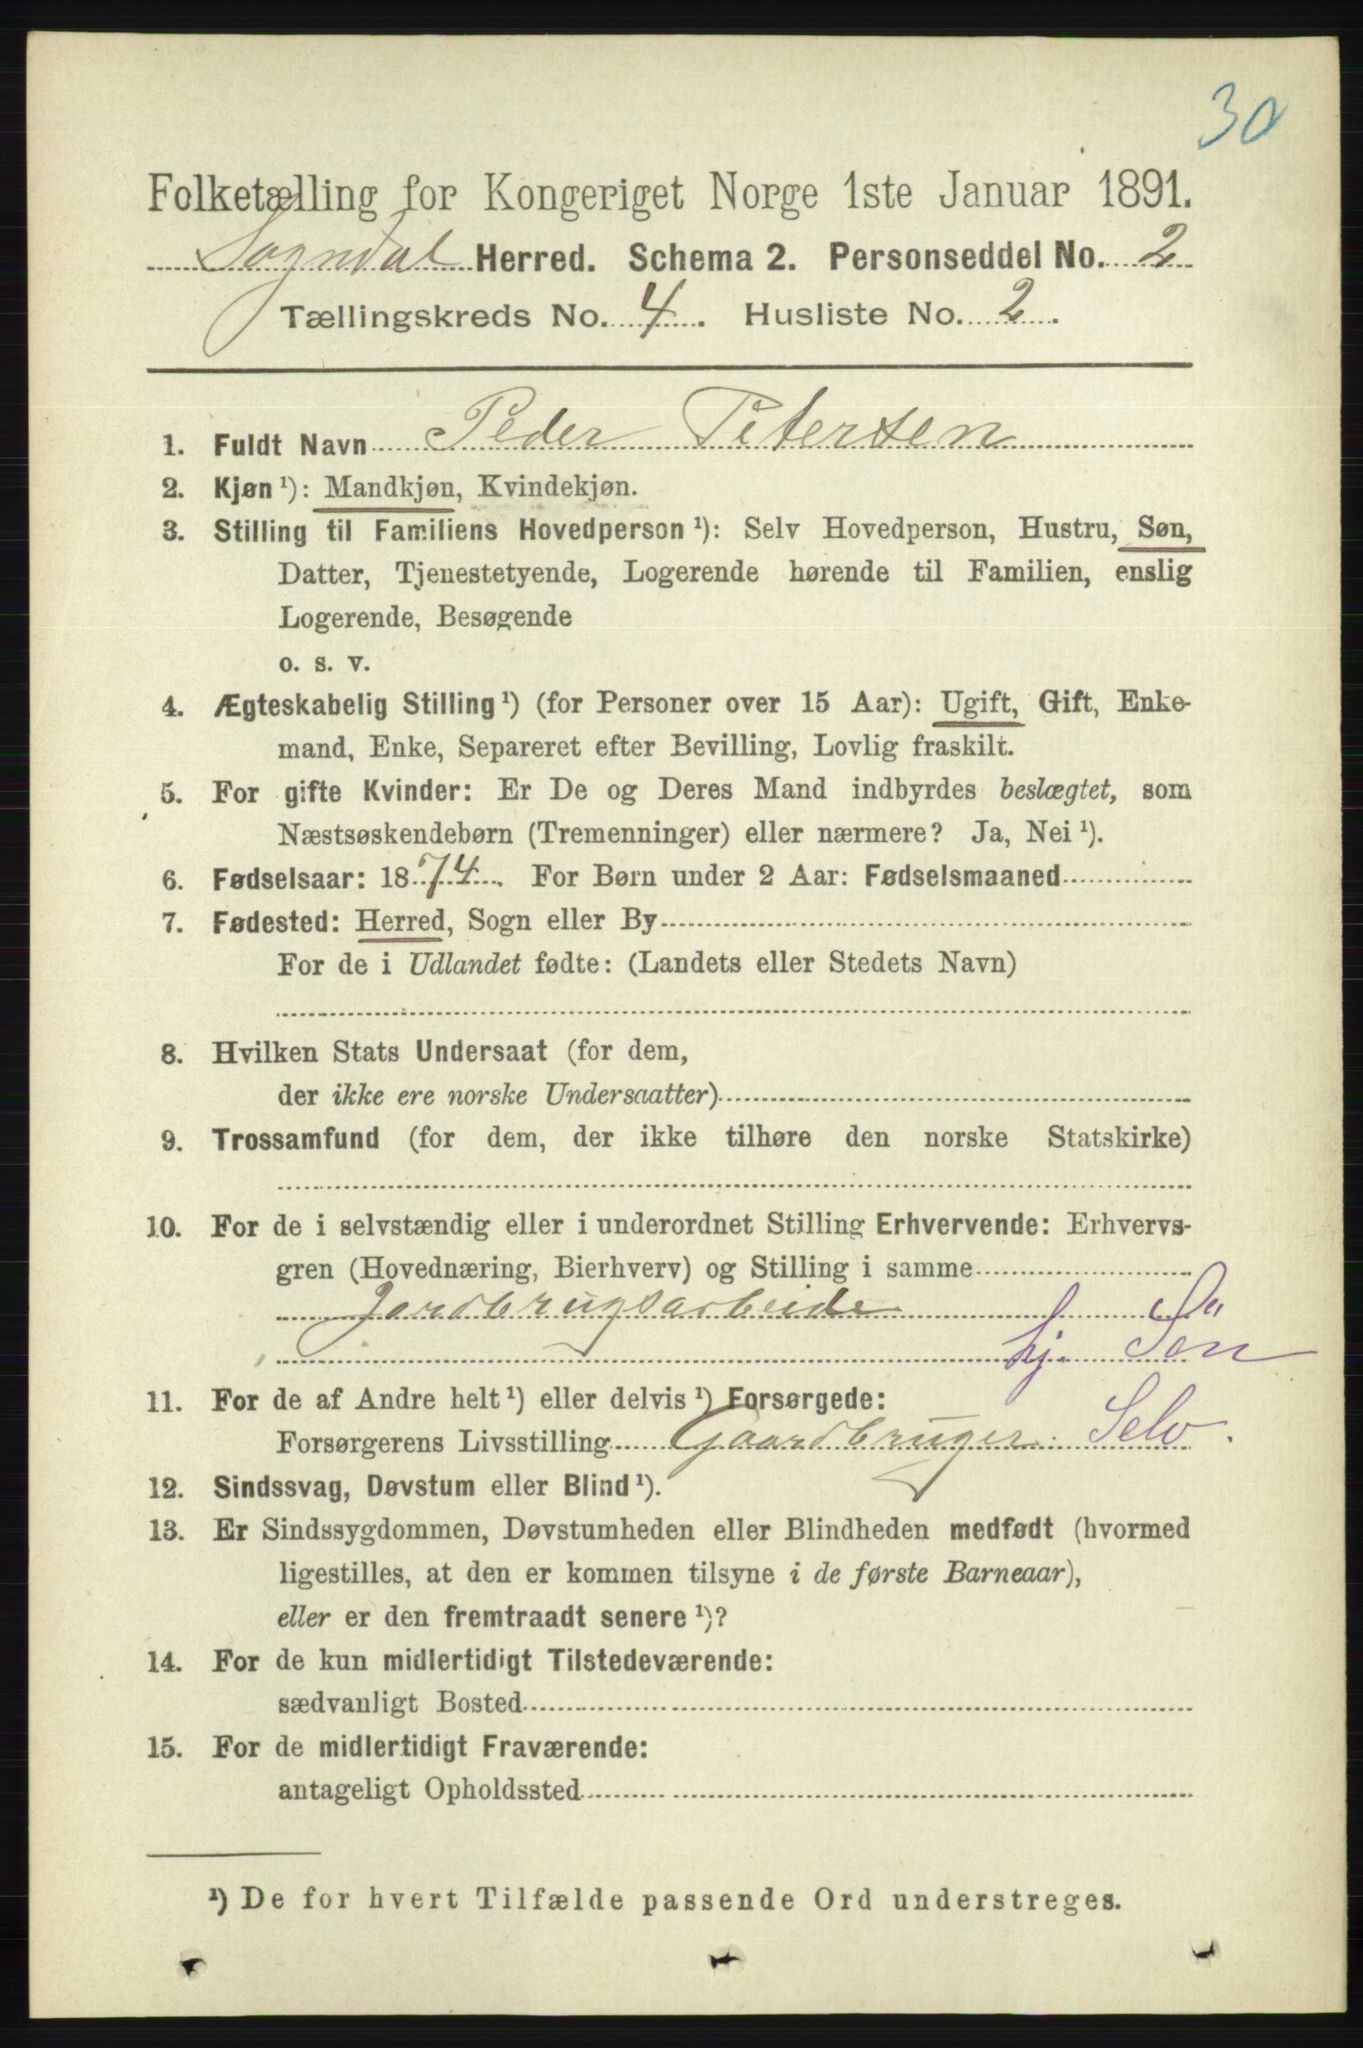 30
Folketælling for Kongeriget Norge 1ste Januar 1891.
Sogndal Herred. Schema 2. Personseddel No. 2
Tællingskreds No. 4. Husliste No. 2.
1. Fuldt Navn Peder Petersen
2. Kjøn ¹): Mandkjøn, Kvindekjøn.
3. Stilling til Familiens Hovedperson ¹): Selv Hovedperson, Hustru, Søn,
Datter, Tjenestetyende, Logerende hørende til Familien, enslig
Logerende, Besøgende
o. s. v.
4. Ægteskabelig Stilling ¹) (for Personer over 15 Aar): Ugift, Gift, Enke-
mand, Enke, Separeret efter Bevilling, Lovlig fraskilt.
5. For gifte Kvinder: Er De og Deres Mand indbyrdes beslægtet, som
Næstsøskendebørn (Tremenninger) eller nærmere? Ja, Nei ¹).
6. Fødselsaar: 1874. For Børn under 2 Aar: Fødselsmaaned
7. Fødested: Herred, Sogn eller By
For de i Udlandet fødte: (Landets eller Stedets Navn)
8. Hvilken Stats Undersaat (for dem,
der ikke ere norske Undersaatter)
9. Trossamfund (for dem, der ikke tilhøre den norske Statskirke)
10. For de i selvstændig eller i underordnet Stilling Erhvervende: Erhvervs-
gren (Hovednæring, Bierhverv) og Stilling i samme
Jordbrugsarbeide
hj. Søn
11. For de af Andre helt ¹) eller delvis ¹) Forsørgede:
Forsørgerens Livsstilling Gaardbruger Selv.
12. Sindssvag, Døvstum eller Blind ¹).
13. Er Sindssygdommen, Døvstumheden eller Blindheden medfødt (hvormed
ligestilles, at den er kommen tilsyne i de første Barneaar),
eller er den fremtraadt senere ¹)?
14. For de kun midlertidigt Tilstedeværende:
sædvanligt Bosted
15. For de midlertidigt Fraværende:
antageligt Opholdssted
¹) De for hvert Tilfælde passende Ord understreges.